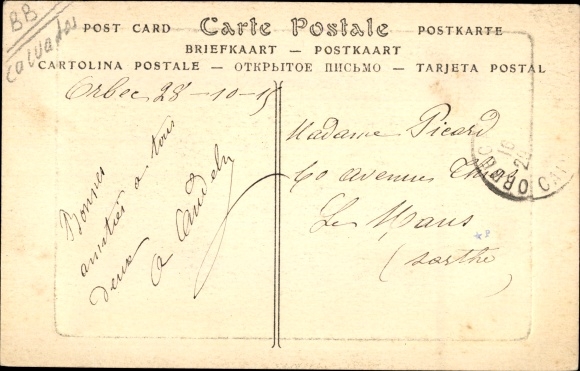 BB
Calvados
POST CARD Carte Postale POSTKARTE
BRIEFKAART — POSTKAART
CARTOLINA POSTALE — ОТКРЫТОЕ ПИСЬМО — TARJETA POSTAL
Orbec 28-10-15
Bonnes
amitiés a tous
deux
Madame Picard
60 avenue Thiers
Le Mans
(Sarthe
ORBEC
16
28